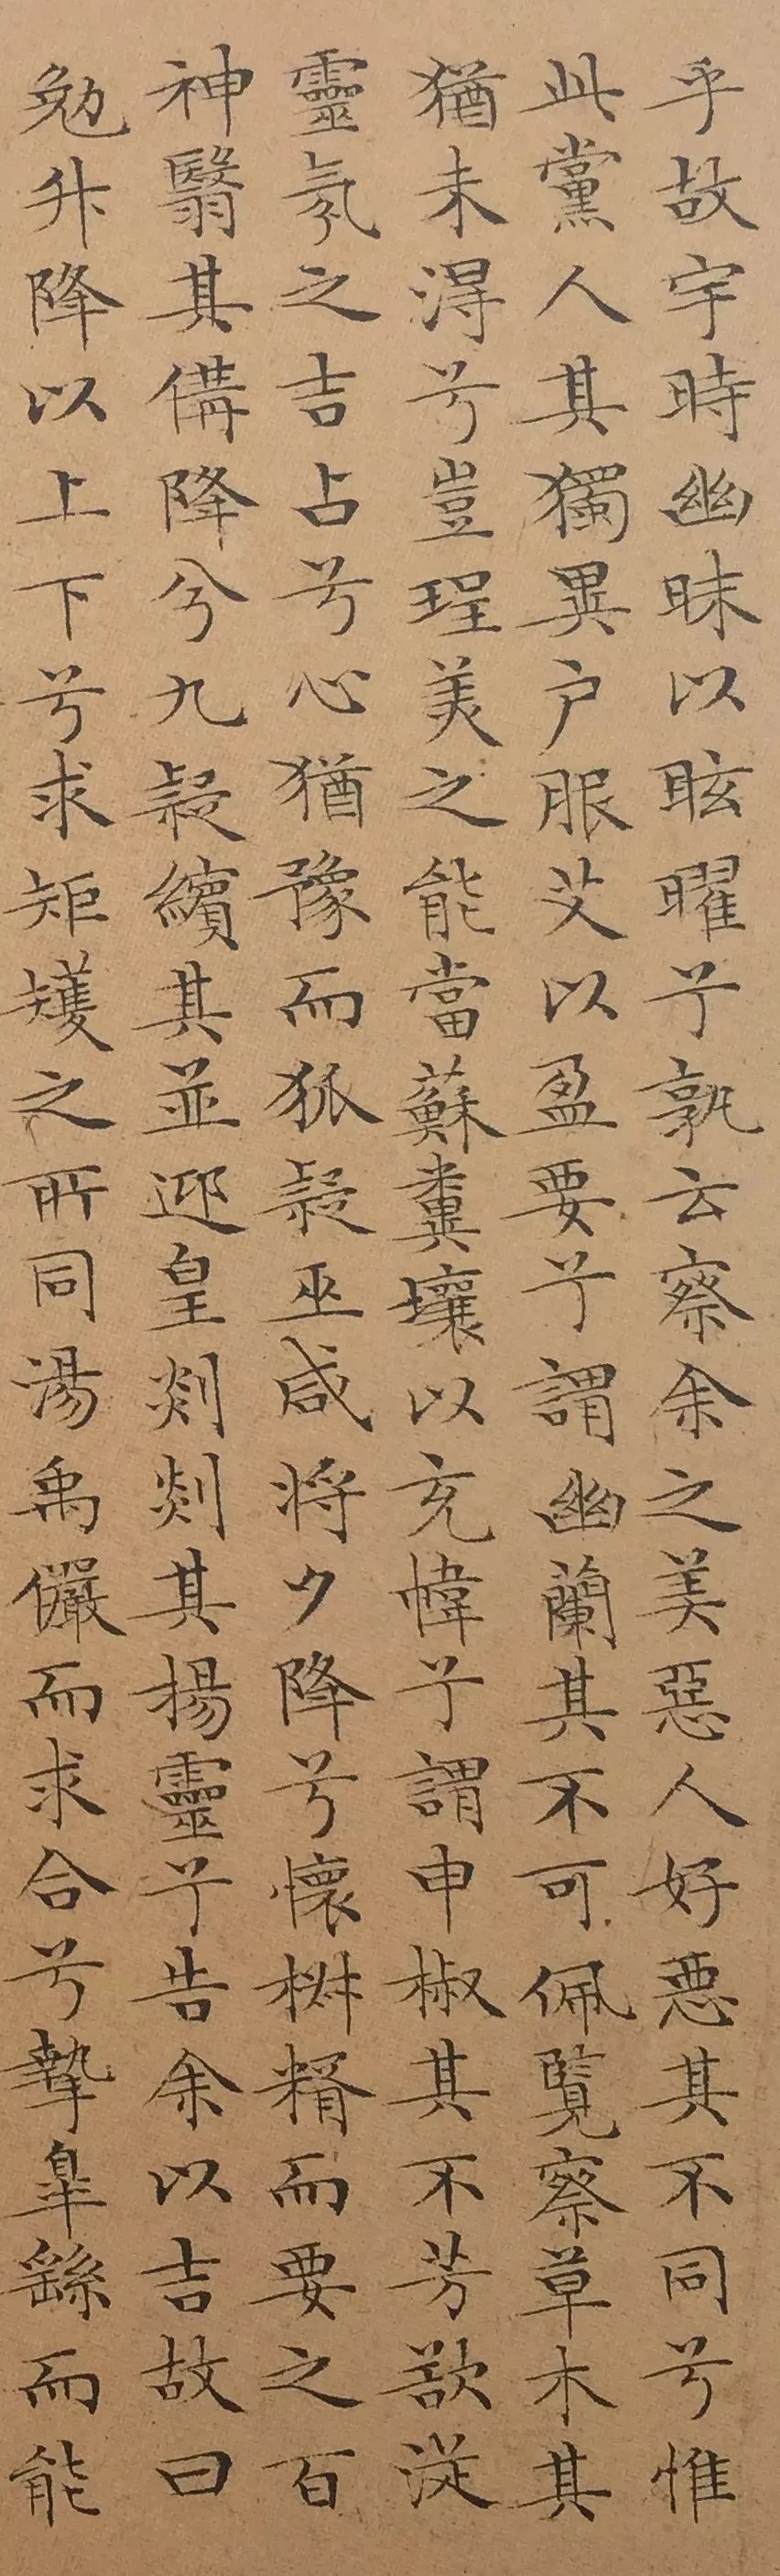 乎故宇時幽昧以眩曜兮孰云察余之美惡人好惡其不同兮惟
此黨人其獨異户服艾以盈要兮謂幽蘭其不可佩覽察草木其
猶未得兮豈珵美之能當蘇糞壤以充幃兮謂申椒其不芳欲從
靈氛之吉占兮心猶豫而狐疑巫咸將夕降兮懷椒糈而要之百
神翳其備降兮九疑繽其並迎皇剡剡其揚靈兮告余以吉故曰
勉升降以上下兮求矩矱之所同湯禹儼而求合兮摯皐繇而能